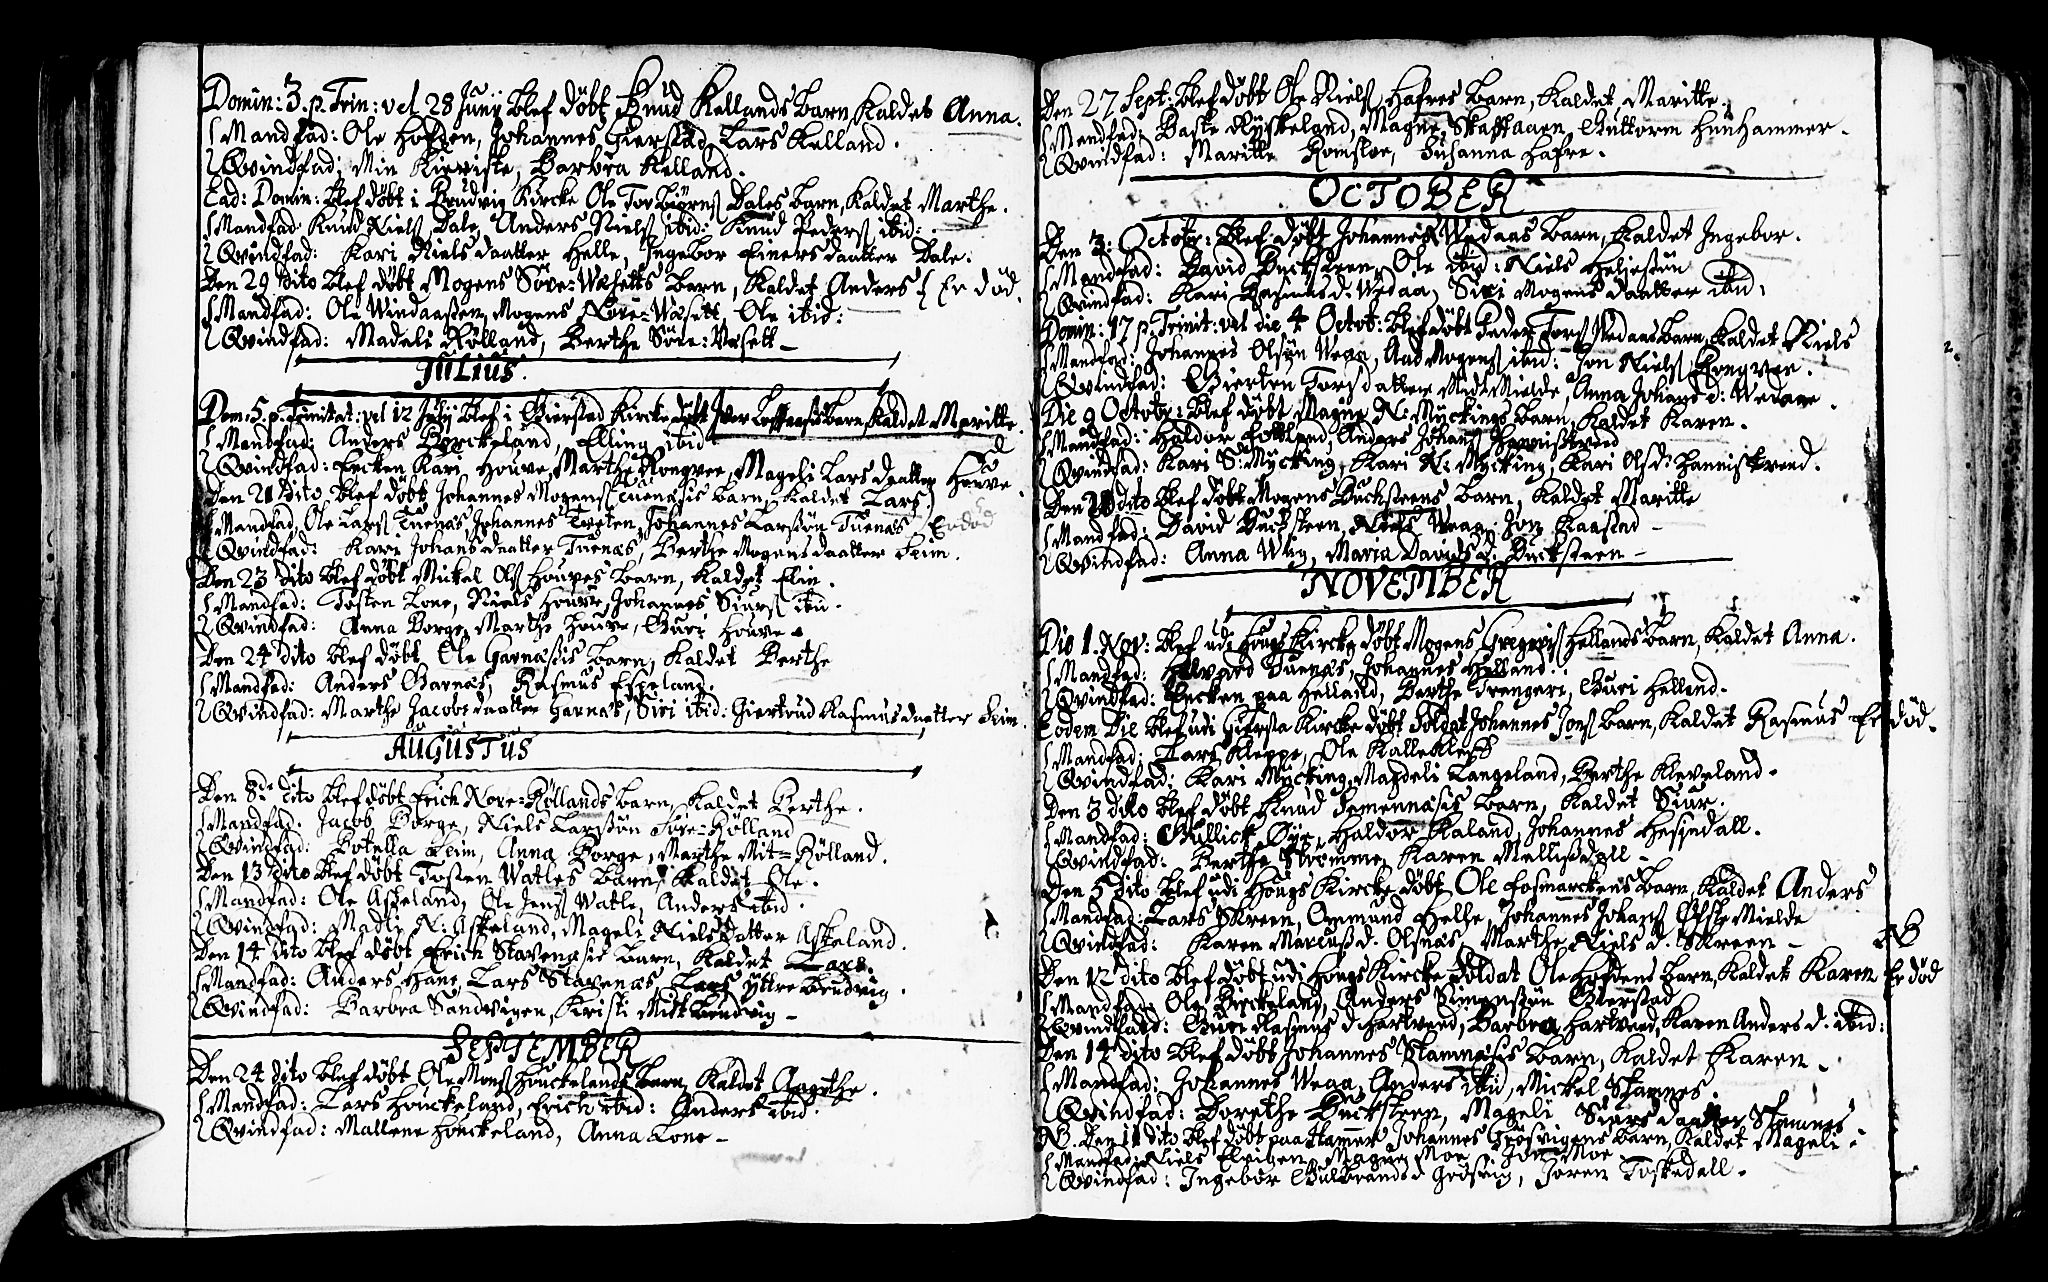 Domin: 3. p. Trin: vel 28 Junij blef döbt Knud Kellands barn, Kaldet Anna.
Mandfad: Ole Hofden, Johannes Gierstad, Lars Kelland.
Qvindfad: Min Kieriste, Barbra Kelland.
Ead: Domin: blef döbt i Brudvig Kircke Ole Torbiörns Dales barn, Kaldet Marthe.
Mandfad: Knud Niels Dale, Anders Niels ibid: Knud Peders ibid:
Qvindfad: Kari Niels daatter Helle, Ingebor Einers daatter Dale.
Den 29 dito blef döbt Mogens Söre-Wæsetts barn, Kaldet Anders Er död.
Mandfad: Ole Windaassen, Mogens Nore-Wæsett, Ole ibid:
Qvindfad: Madeli Rölland, Berthe Söre-Wæsett
JULIUS.
Dom: 5. p. Trinitat: vel 12 Julij blef i Gierstad Kircke döbt Iver barn, Kaldet Maritte.
Mandfad: Anders Birckeland, Elling ibid
Qvindfad: Encken Kari Houve, Marthe Rongvee, Mageli Lars daatter Houve.
Den 21 dito blef döbt Johannes Mogens Tuenæsis barn, Kaldet Lars.
Mandfad: Ole Lars Tuenæs, Johannes Tveten, Johannes Larssön Tuenæs Er död
Qvindfad: Kari Johans daatter Tuenæs, Berthe Mogens daatter Seim.
Den 23 dito blef döbt Mickel Ols Houves barn, Kaldet Elin.
Mandfad: Tosten Lone, Niels Houve, Johannes Siurs ibid.
Qvindfad: Anna Borge, Marthe Houve, Guri Houve
Den 24 dito blef döbt Ole Garnæsis barn, Kaldet Berthe
Mandfad: Anders Garnæs, Rasmus Espeland.
Qvindfad: Marthe Jacobs daatter Garnæs, Siri ibid: Giertrud Rasmus daatter Seim.
AUGUSTUS
Den 8de dito blef döbt Erich Nore-Röllands barn, Kaldet Berthe.
Mandfad. Jacob Borge, Niels Larssön Söre-Rölland
Qvindfad: Botella Seim, Anna Borge, Marthe Mit-Rölland.
Den 13 dito blef döbt Tosten Watles barn, Kaldet Ole.
Mandfad: Ole Askeland, Ole Jens Watle, Anders ibid.
Qvindfad: Madli N: Askeland, Mageli Niels datter Askeland.
Den 14 dito blef döbt Erich Stavenæsis barn, Kaldet Lars.
Mandfad: Anders Hane, Lars Stavenæs, Lars Yttre Brudvig.
Qvindfad: Barbra Sandvigen, Kirsti Mitt Brudvig
SEPTEMBER
Den 24 dito blef döbt Ole Mons Houckelands barn, Kaldet Angethe.
Mandfad: Lars Houckeland, Erich ibid: Anders ibid.
Qvindfad: Mallene Houckeland, Anna Lone
Den 27 Sept: blef döbt Ole Niels Hafres barn, Kaldet Maritte.
Mandfad: Baste Ryskeland, Magne Skaftaaen, Guttorm Hunhammer.
Qvindfad: Maritte Romsloe, Susanna Hafre.
OCTOBER
Den 3: Octobr: blef döbt Johannes Wedaas barn, Kaldet Ingebor.
Mandfad: David Bucksteen, Ole ibid: Niels Heljessön
Qvindfad: Kari Rasmus d. Wedaa, Siri Mogens daatter ibid:
Domin: 17 p. Trinit: vel die 4 Octob: blef döbt Peder Tors Wedaas barn, Kaldet Niels
Mandfad: Johannes Olsön Weaa, Aad Mogens ibid: Jon Niels Rongvee.
Qvindfad: Gierten Tors datter Mit Mielde, Anna Johans d: Wedaae.
Die 9 Octobr: blef döbt Magne N: Myckings barn, Kaldet Karen.
Mandfad: Haldor Eckland, Anders Johans Hannistvend
Qvindfad: Kari S: Mycking, Kari N: Mycking, Kari Ols d: Hannistvend.
Den 20 dito blef döbt Mogens Buchsteens barn, Kaldet Maritte
Mandfad: David Bucksteen, Niels Weaa, Jon Kaasend
Qvindfad: Anna Wiig, Maria Davids d. Buckstaen
NOVEMBER
Die 1. Nov: blef udi Hougs Kircke döbt Mogens Gregoris Hellands barn, Kaldet Anna.
Mandfad: Halvord Tuenæs, Johannes Helland.
Qvindfad: Encken paa Helland, Berthe Trengeri, Guri Helland.
Eodem Die blef udi Giersta Kircke döbt Soldat Johannes Jons barn, Kaldet Rasmus Er död.
Mandfad: Lars Kleppe, Ole Kallekleft
Qvindfad: Kari Mycking, Magdeli Langeland, Berthe Kleveland.
Den 3 dito blef döbt Knud Samennæsis barn, Kaldet Siur.
Mandfad: Gullick Öye, Haldor Kaland, Johannes Hesjedall.
Qvindfad: Berthe Strömme, Karen Mellissdall
Den 5 dito blef udi Hougs Kircke döbt Ole Fosmarckens barn, Kaldet Anders
Mandfad: Lars Skreen, Ommund Helle, Johannes Johans Öfste Mielde
Qvindfad: Karen Marcuss d. Olsnæs, Marthe Niels d. Skreen NB
Den 12 dito blef döbt udi Hougs Kircke Soldat Ole Hofdens barn, Kaldet Karen Er död
Mandfad: Ole Birckeland, Anders Simenssön Gierstad
Qvindfad: Guri Rasmus d. Hartveed, Barbra Hartveed, Karen Anders d. ibid:
Den 14 dito blef döbt Johannes Stamnæsis barn, Kaldet Karen.
Mandfad: Johannes Weaa, Anders ibid, Mickel Stamnes.
Qvindfad: Dorethe Bucksteen, Mageli Siurs daatter Stamnes
NB. Den 11 dito blef döbt paa Hammer Johannes Grösvigens barn, Kaldet Mageli
Mandfad: Niels Elvigen, Magne Moe, Jon Moe
Qvindfad: Ingebor Gulbrands d Grösvig, Joren Toskedall.